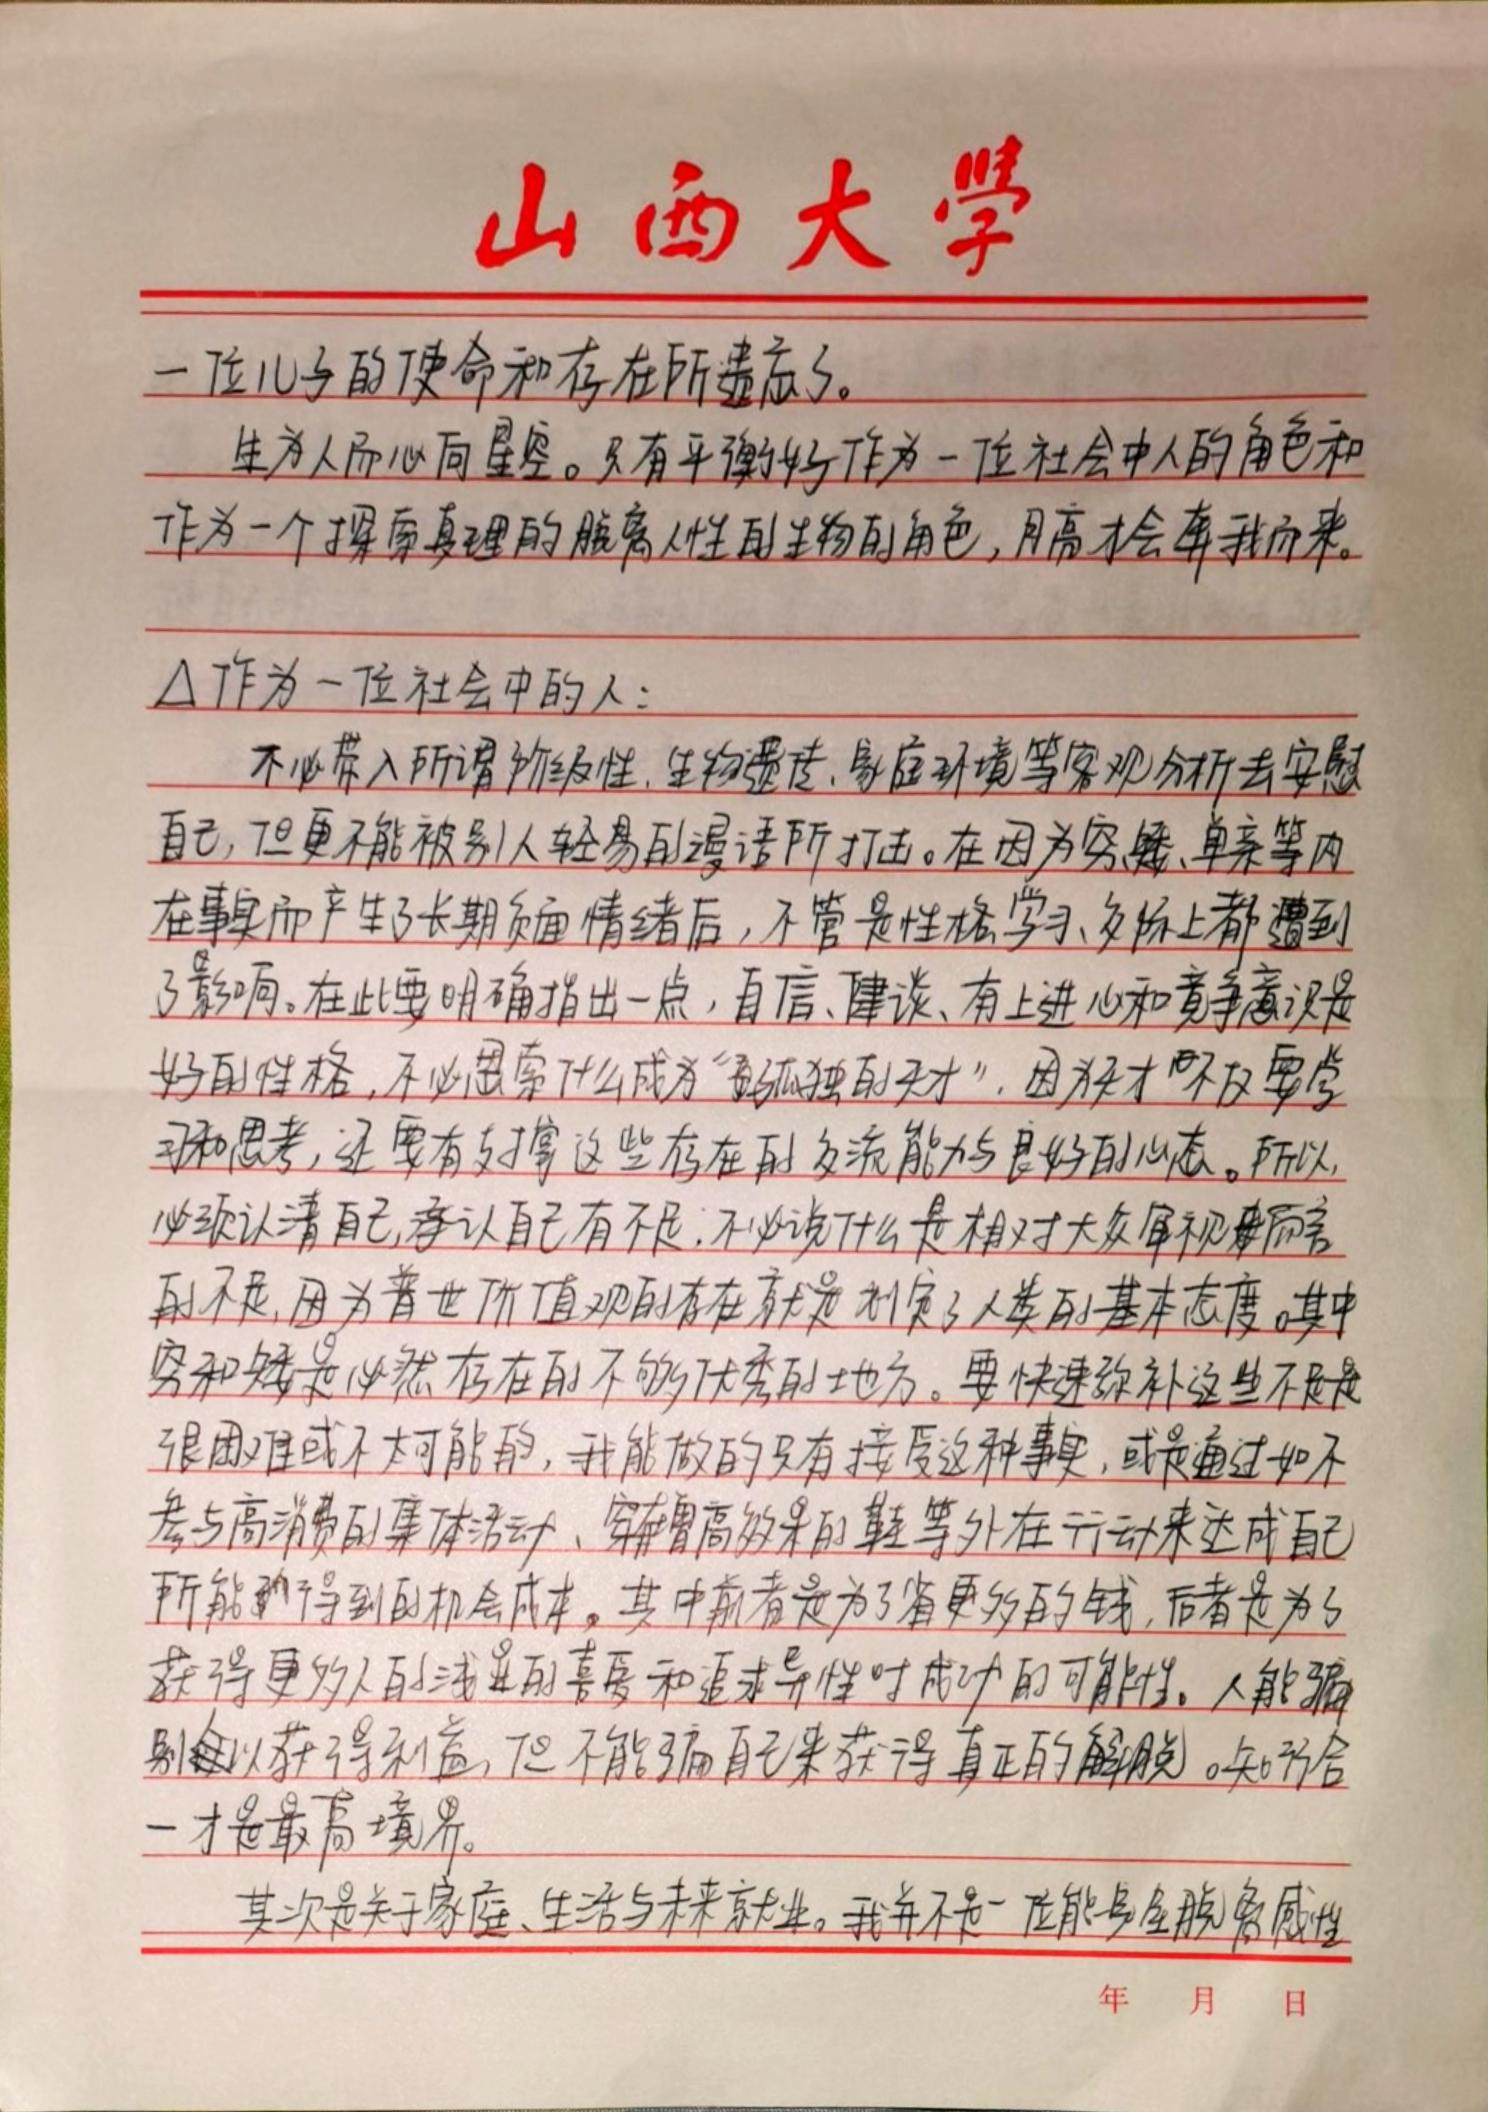 山西大學
一位儿子的使命和存在所遗忘了。
生为人而心向星空。只有平衡好作为一位社会中人的角色和
作为一个探索真理的脱离人性的生物的角色，月亮才会奔我而来。
△作为一位社会中的人：
不必带入所谓阶级性、生物遗传、家庭环境等客观分析去安慰
自己，但更不能被别人轻易的谩语所打击。在因为穷、矮、单亲等内
在事实而产生了长期负面情绪后，不管是性格、学习、交际上都遭到
了影响。在此要明确指出一点，自信、健谈、有上进心和竞争意识是
好的性格，不必思索什么成为“孤独的天才”，因为天才不仅要学
习和思考，还要有支撑这些存在的交流能力与良好的心态。所以，
必须认清自己，承认自己有不足；不必说什么是相对大众审视而言
的不足，因为普世价值观的存在就是划定了人类的基本态度。其中
穷和矮是必然存在的不够优秀的地方。要快速弥补这些不足是
很困难或不太可能的，我能做的只有接受这种事实，或是通过如不
参与高消费的集体活动、穿增高效果的鞋等外在行动来达成自己
所能得到的机会成本。其中前者是为了省更多的钱，后者是为了
获得更多人的浅显的喜爱和追求异性时成功的可能性。人能骗
别人以获得利益，但不能骗自己来获得真正的解脱。知行合
一才是最高境界。
其次是关于家庭、生活与未来就业。我并不是一位能完全脱离感性
年 月 日